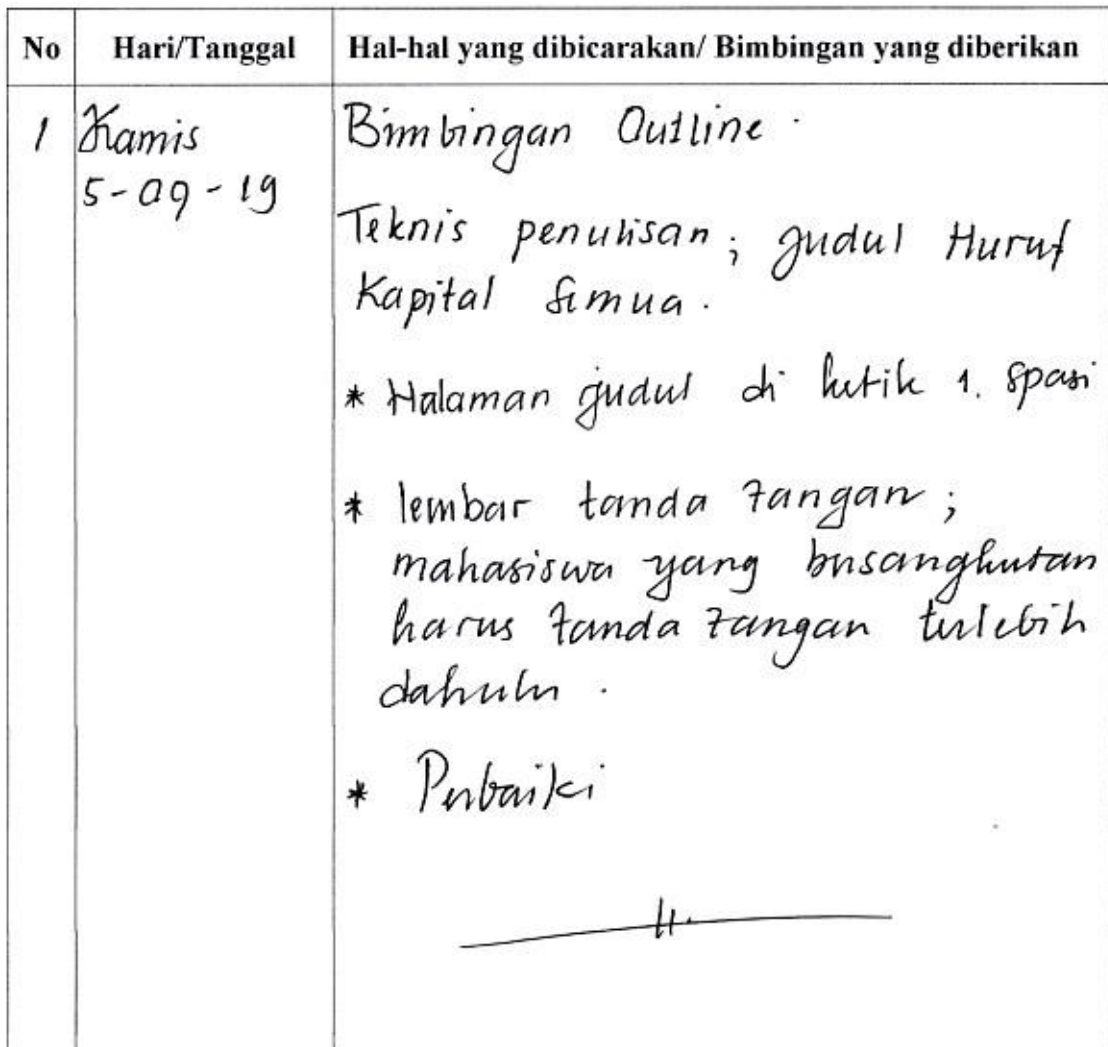 No Hari/Tanggal Hal-hal yang dibicarakan/ Bimbingan yang diberikan
1 Kamis Bimbingan Outline.
5-09-19
Teknis penulisan; judul Huruf
Kapital semua.
* Halaman judul di ketik 1. spasi
* lembar tanda tangan;
mahasiswa yang bersangkutan
harus tanda tangan terlebih
dahulu.
* Perbaiki